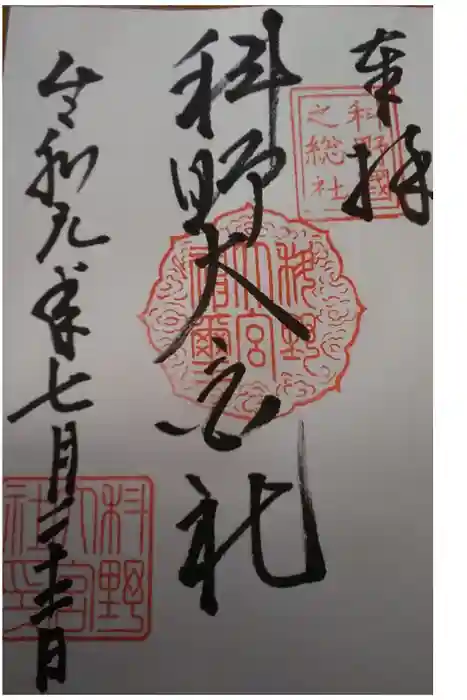 奉拝
科野國
之総社
科野大宮社
科野
大宮
令和元年七月二十三日
科野
大宮
社印